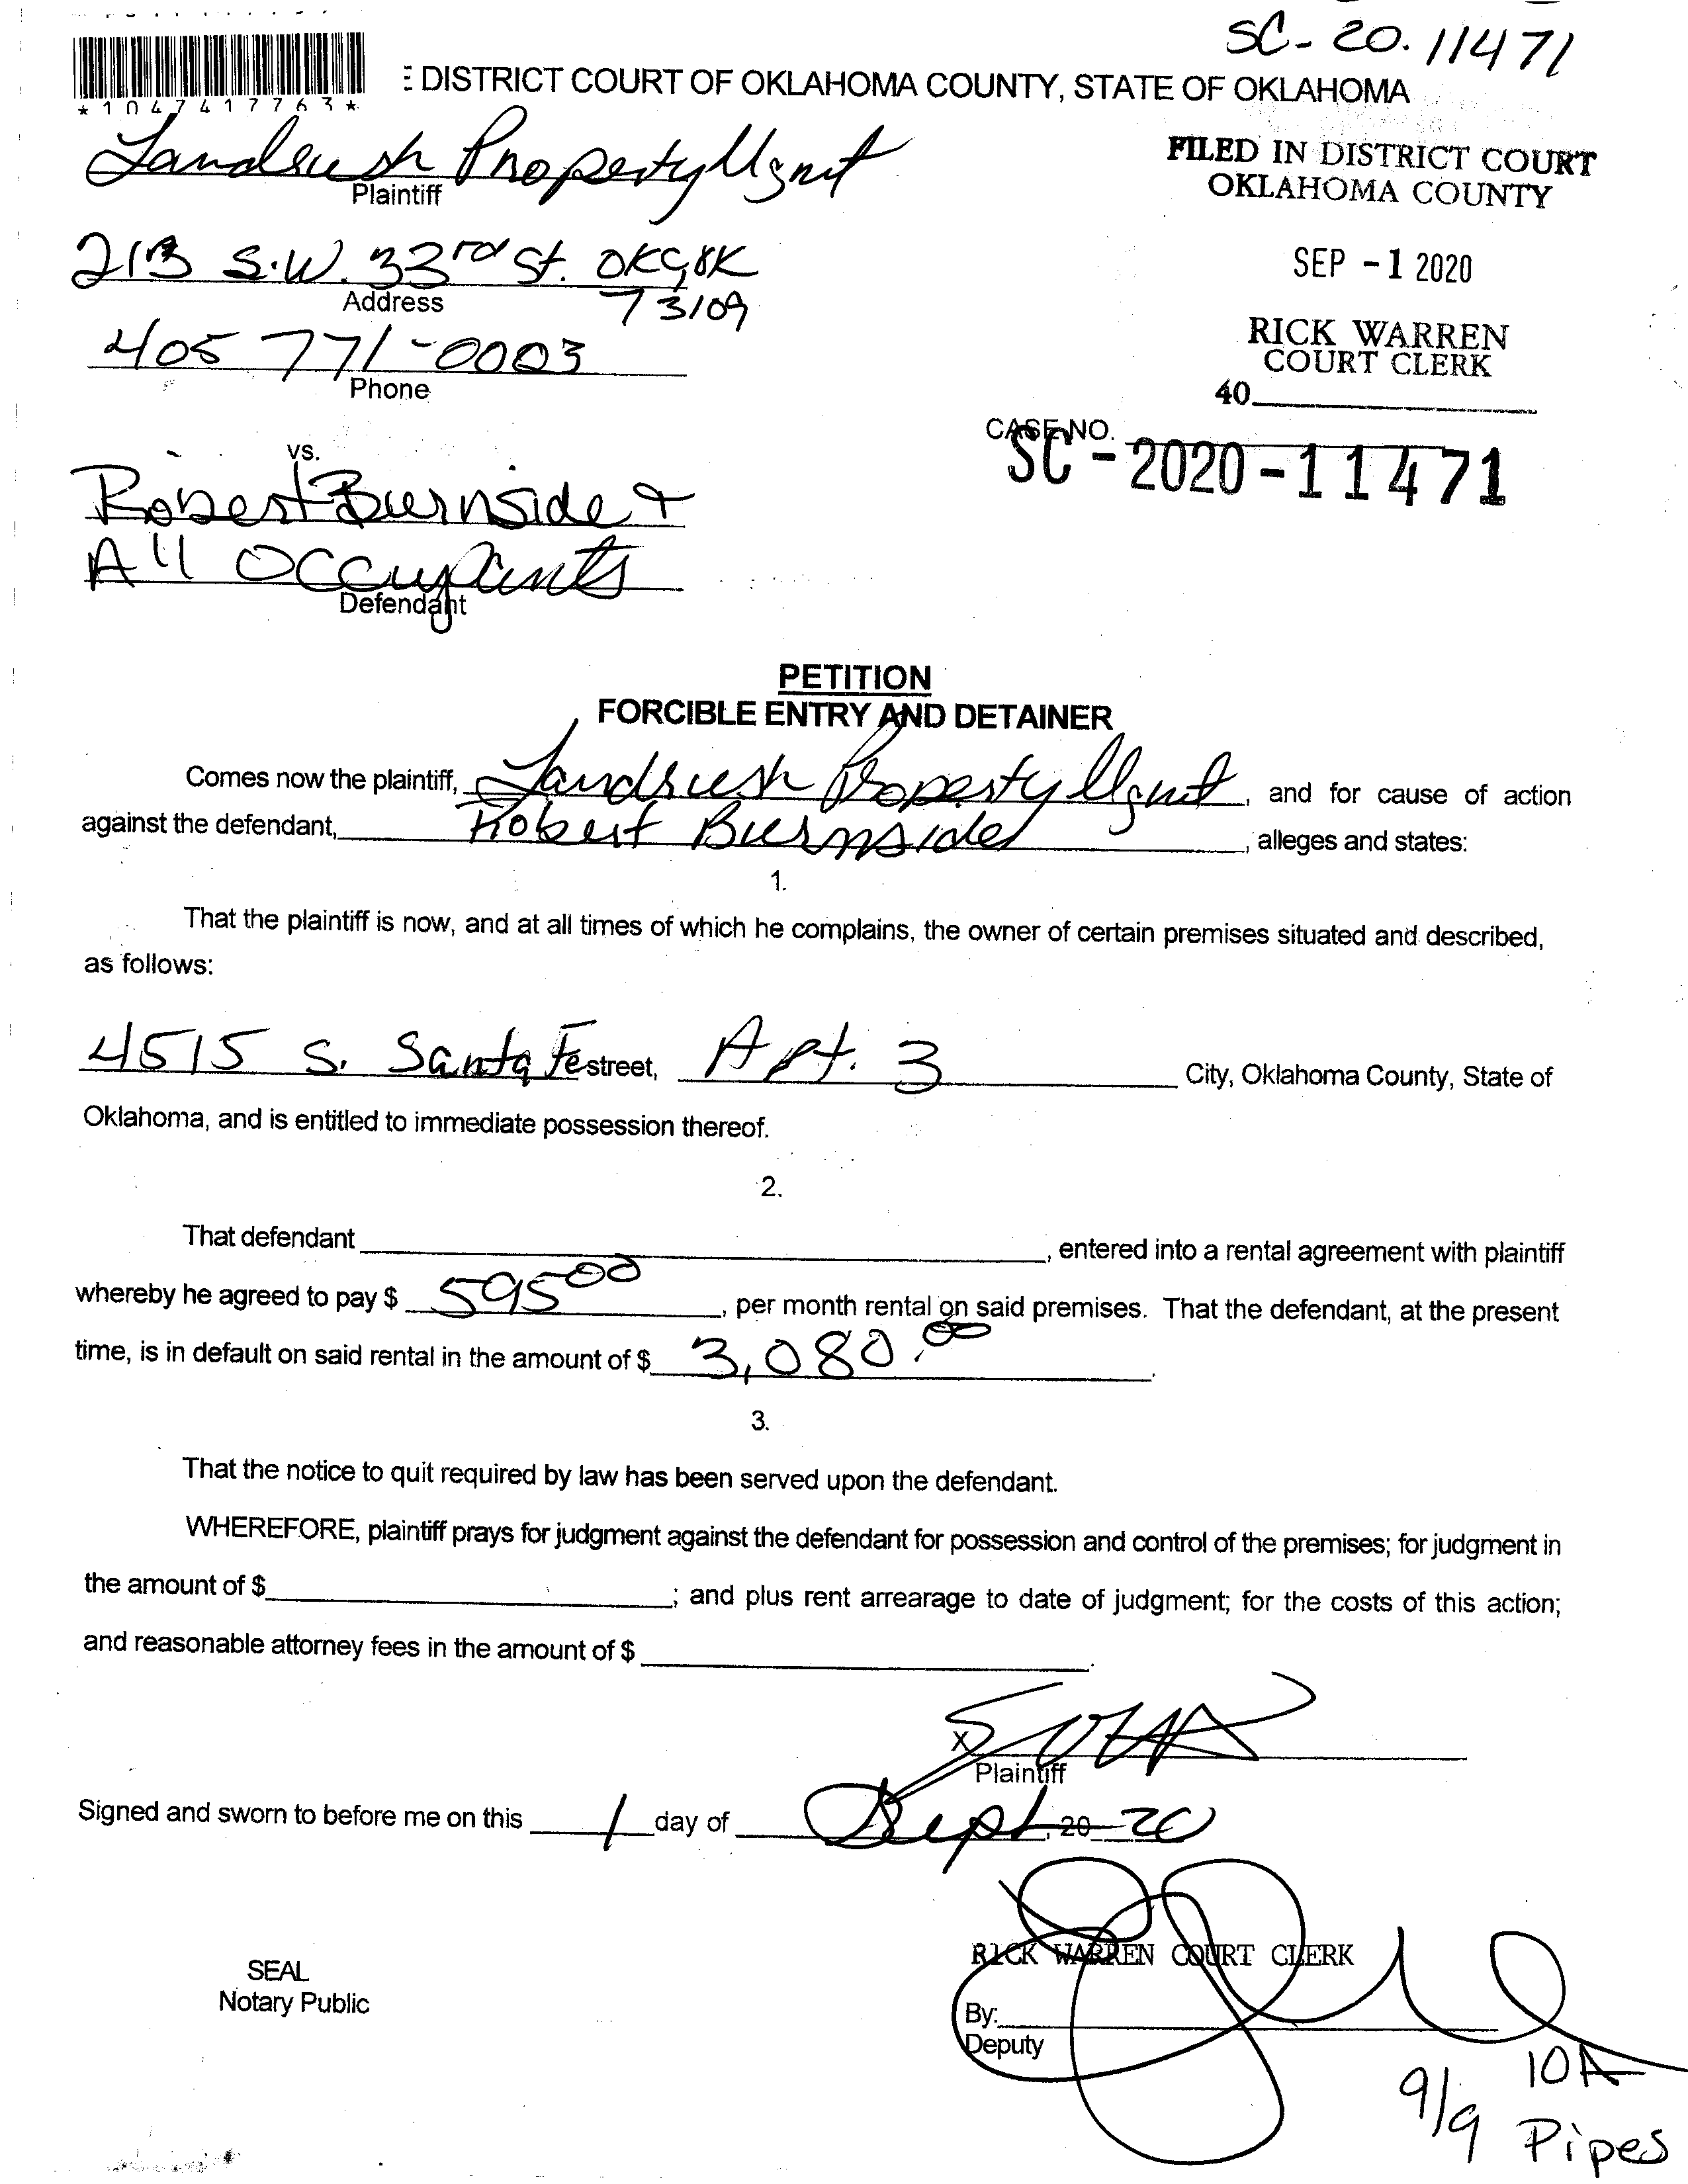 SC-20.11471
*1047417763*
E DISTRICT COURT OF OKLAHOMA COUNTY, STATE OF OKLAHOMA
Landrush Property Mgnt
Plaintiff
FILED IN DISTRICT COURT
OKLAHOMA COUNTY
213 S.W. 33rd St. OKC, OK
Address
73109
SEP -1 2020
405 771-0003
Phone
RICK WARREN
COURT CLERK
40
CASE NO.
SC-2020-11471
vs.
Robert Burnside &
All Occupants
Defendant
PETITION
FORCIBLE ENTRY AND DETAINER
Comes now the plaintiff, Landrush Property Mgnt, and for cause of action
against the defendant, Robert Burnside, alleges and states:
1.
That the plaintiff is now, and at all times of which he complains, the owner of certain premises situated and described,
as follows:
4515 S. Santa Fe street, Apt. 3 City, Oklahoma County, State of
Oklahoma, and is entitled to immediate possession thereof.
2.
That defendant, entered into a rental agreement with plaintiff
whereby he agreed to pay $ 595 00, per month rental on said premises. That the defendant, at the present
time, is in default on said rental in the amount of $ 3,080.00.
3.
That the notice to quit required by law has been served upon the defendant.
WHEREFORE, plaintiff prays for judgment against the defendant for possession and control of the premises; for judgment in
the amount of $; and plus rent arrearage to date of judgment; for the costs of this action;
and reasonable attorney fees in the amount of $.
X
Plaintiff
Signed and sworn to before me on this 1 day of Sept, 20 20
RICK WARREN COURT CLERK
SEAL
Notary Public
By:
Deputy
10A
9/9
Pipes